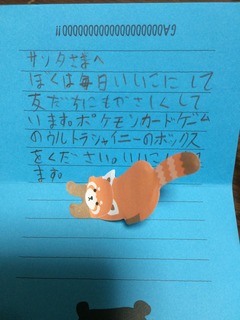 GAOOOOOOOOOOOOO!!
サンタさまへ
ぼくは毎日いいこにして
友だちにもやさしくして
います。ポケモンカードゲーム
のウルトラシャイニーのボックス
をください。いいこに
ます。